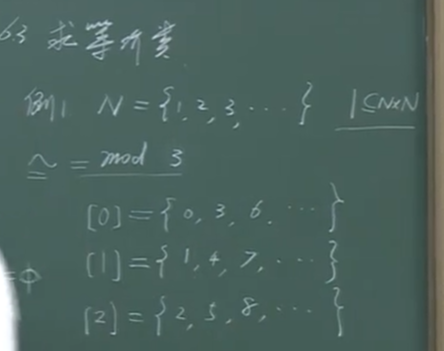 6.3 求等价类
例1 N={1,2,3,⋯} |⊆N×N
≅ = mod 3
[0]={0,3,6,⋯}
[1]={1,4,7,⋯}
=ϕ
[2]={2,5,8,⋯}